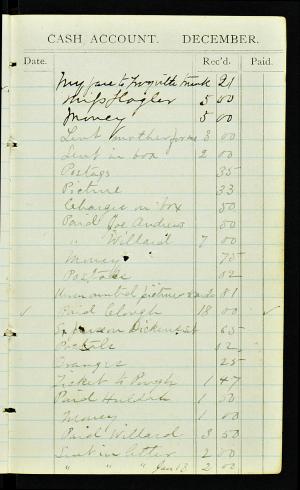 CASH ACCOUNT. DECEMBER.
Date. Rec'd. Paid.
My fare to trunk 21
Miss Hagler 5 00
Money 5 00
Lent mother for me 3 00
Lent in box 2 00
Postage 35
Picture 33
Charges on box 50
Paid Joe Andrews 50
" Willard 7 00
Money 75
Postage 02
Unmounted pictures 2 81
Paid Clough 18 00
Dickens 65
Postals 12
Oranges 25
Ticket to Pough 1 47
Paid 1 50
Money 1 00
Paid Willard 3 50
Sent in letter 2 00
" " " Jan 13 2 00